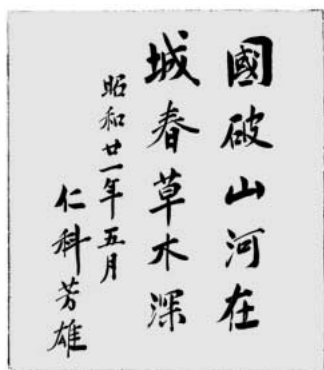 國破山河在
城春草木深
昭和廿一年五月
仁科芳雄